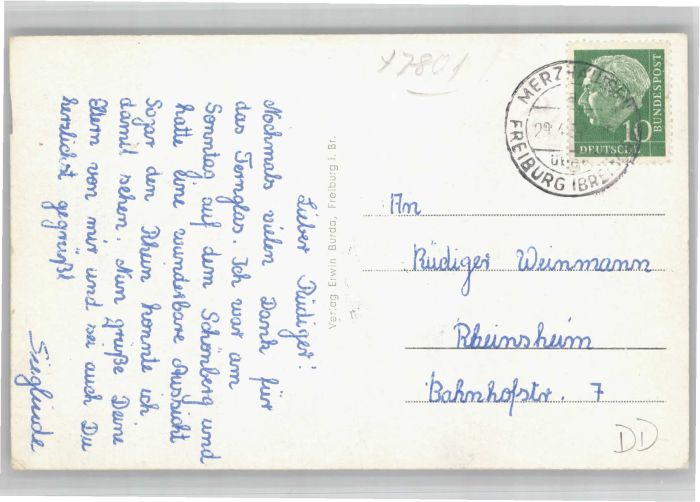 x7801
MERZHAUSEN
FREIBURG (BRE
29.4
DEUTSCHE
BUNDESPOST
10
Lieber Rüdiger!
Nochmals vielen Dank für
das Fernglas. Ich war am
Sonntag auf dem Schönberg und
hatte eine wunderbare Aussicht
Sogar den Rhein konnte ich
damit sehen. Nun grüße Deine
Eltern von mir und sei auch Du
herzlichst gegrüßt
Sieglinde
Verlag Erwin Burda, Freiburg i. Br.
An
Rüdiger Weinmann
Rheinsheim
Bahnhofstr. 7
DD